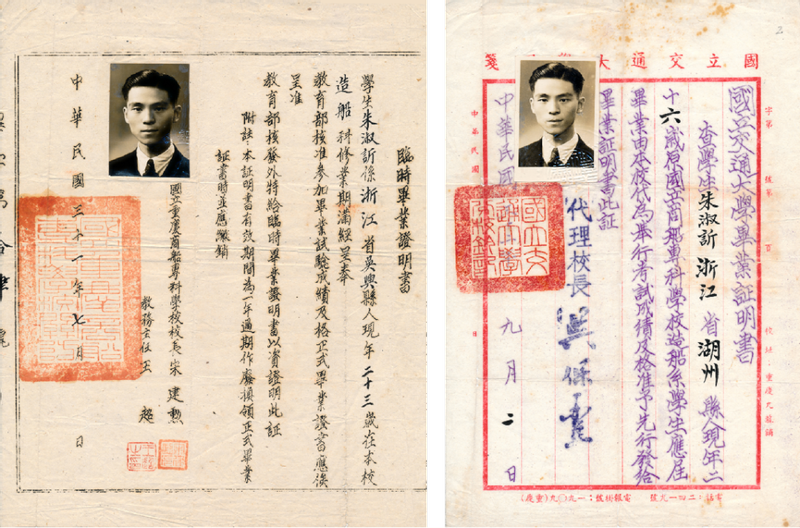 臨時畢業證明書
學生朱淑訢係浙江省吳興縣人現年二十三歲在本校
造船科修業期滿經呈奉
教育部核准參加畢業試驗成績及格正式畢業證書應俟
呈准
教育部核發外特給臨時畢業證明書以資證明此証
附註:本証明書有效期間為一年過期作廢換領正式畢業
証書時並應繳銷
國立重慶商船專科學校校長宋建勳
教務主任王超
中華民國三十一年七月 日
國立交通大 箋
國立交通大學畢業証明書
查學生朱淑訢浙江省湖州縣人現年二
十六歲原國立商船專科學校造船系學生應屆
畢業由本校代為舉行考試成績及格准予先行發給
畢業証明書此証
代理校長吳保豐
中華民國 九月二日